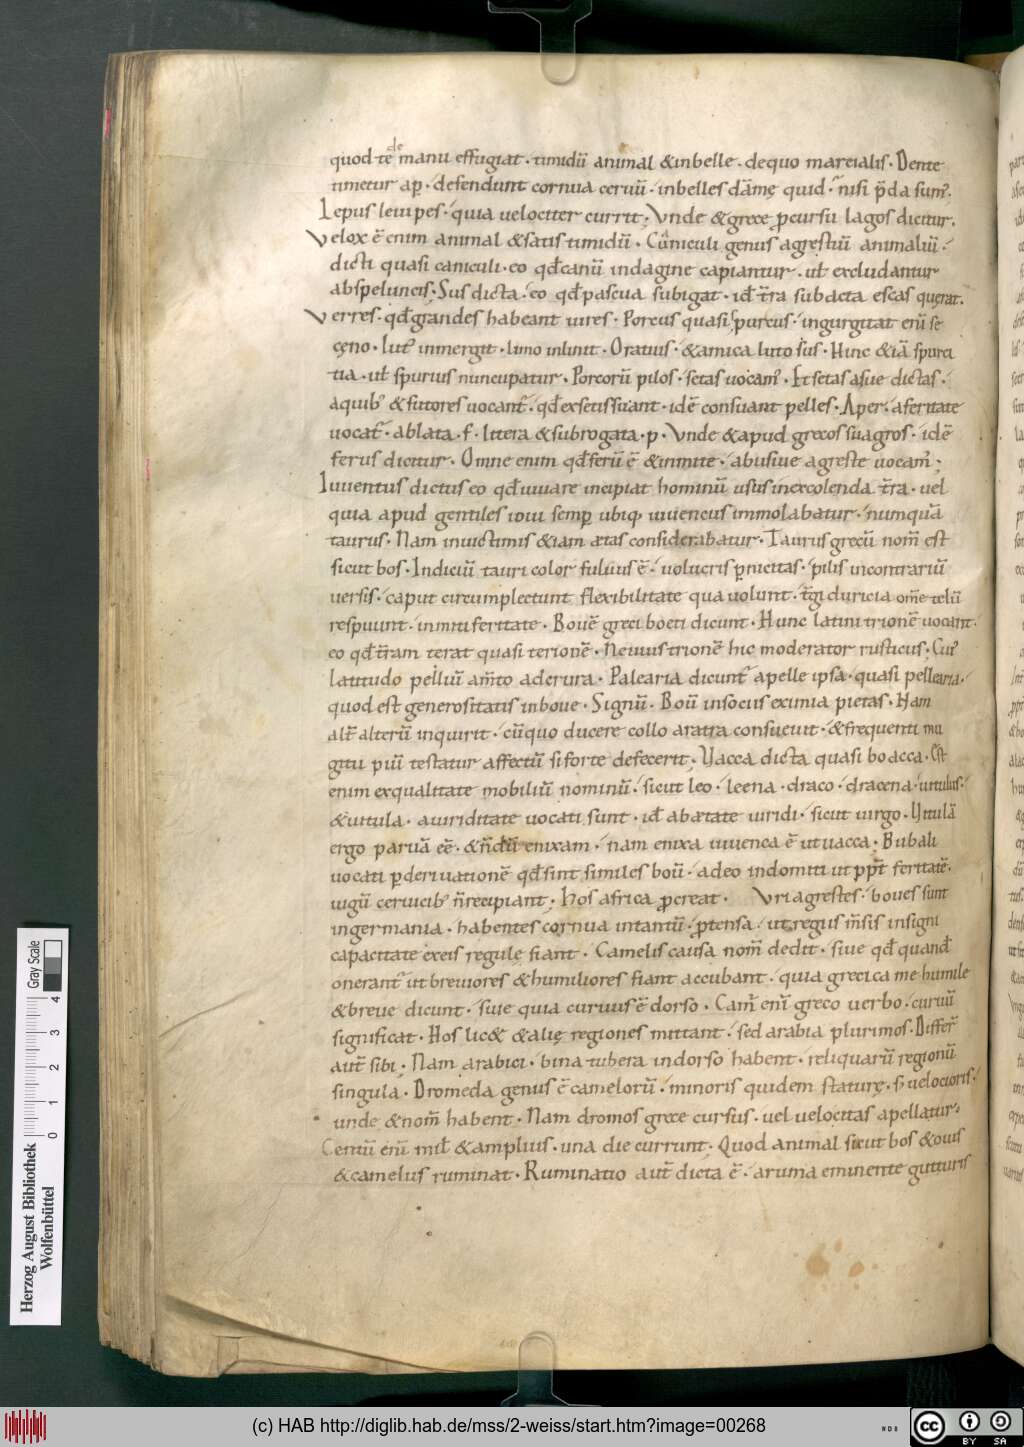 quod te de manu effugiat · timidū animal & inbelle · de quo marcialis · Dente
timetur ap̄ · defendunt cornua ceruū · inbelles dāmę quid · nisi p̄da sum᷒
Lepus leuipes · quia uelociter currit · Vnde & grece p̄cursu lagos dicitur ·
Velox ē enim animal & satis timidū · Cuniculi genus agrestiū animaliū ·
dicti quasi caniculi · eo qđ canū indagine capiantur · uł excludantur
ab speluncis · Sus dicta · eo qđ pascua subigat · id t̄ra subacta escas quęrat ·
Verres · qđ grandes habeant uires · Porcus quasi spurcus · ingurgitat enī se
cęno · lut᷒ inmergit · limo inlinit · Oratius · & amica luto sus · Hinc & iā spurci
tia · uł spurius nuncupatur · Porcorū pilos · setas uocam᷒ · Et setas a sue dictas ·
a quib᷒ & sutores uocant᷒ · qđ ex setis suant · idē consuant pelles · Aper · a feritate
uocat᷒ · ablata · f · littera & subrogata · p · Vnde & apud grecos suagros · idē
ferus dicitur · Omne enim qđ ferū ē & inmite · abusiue agreste uocam᷒ ·
Iuuentus dictus eo qđ iuuare incipiat hominū usus in excolenda t̄ra · uel
quia apud gentiles ioui semp̄ ubiq; iuuencus immolabatur · numquā
taurus · Nam in uictimis & iam ætas considerabatur · Taurus grecū nom̄ est
sicut bos · Indiciū tauri color fuluus ē · uolucris p̄nicitas · pilis in contrariū
uersis · caput circumplectunt flexibilitate qua uolunt · t̄gi duricia om̄e telū
respuunt · inmiti feritate · Bouē greci boeti dicunt · Hunc latini trionē uocant ·
eo qđ t̄ram terat quasi terionē · Neuius trionē hic moderator rusticus · Cui᷒
latitudo pelliū am̄to ad crura · Palearia dicunt᷒ a pelle ipsa · quasi pellearia ·
quod est generositatis in boue · Signū · Boū in socius eximia pietas · Nam
alt̄ alterū inquirit · cū quo ducere collo aratra consueuit · & frequenti mu
gitu piū testatur affectū si forte defecerit · Vacca dicta quasi boacca · Est
enim ex qualitate mobiliū nominū · sicut leo · leena · draco · dracena · uitulus ·
& uitula · a uiriditate uocati sunt · id ab ætate uiridi · sicut uirgo · Vitulā
ergo paruā eē · & n̄dū enixam · nam enixa iuuenca ē ut uacca · Bubali
uocati p̄ deriuationē qđ sint similes boū · adeo indomiti ut pp̄t feritatē ·
uigū ceruicib᷒ n̄ recipiant · Hos africa p̄creat · Vri agrestes · boues sunt
in germania · habentes cornua in tantū · p̄tensa · ut regus m̄sis insigni
capacitate ex eis regulę fiant · Camelis causa nom̄ dedit · siue qđ quand
onerant᷒ ut breuiores & humiliores fiant accubant · quia greci ca me · humile
& breue dicunt · siue quia curuus ē dorso · Cam̄ enī greco uerbo · curuū
significat · Hos lic& & alię regiones mittant · sed arabia plurimos · Differ̄
aut̄ sibi · Nam arabici · bina tubera in dorso habent · reliquarū regionū
singula · Dromeda genus ē camelorū · minoris quidem staturę · s̄ uelocioris ·
unde & nom̄ habent · Nam dromos grece cursus · uel uelocitas apellatur ·
Centū enī mił & amplius · una die currunt · Quod animal sicut bos & ouis
& camelus ruminat · Ruminatio aut̄ dicta ē · a ruma eminente gutturis
Herzog August Bibliothek
Wolfenbüttel
0 1 2 3 4
Gray Scale
(c) HAB http://diglib.hab.de/mss/2-weiss/start.htm?image=00268
cc BY SA